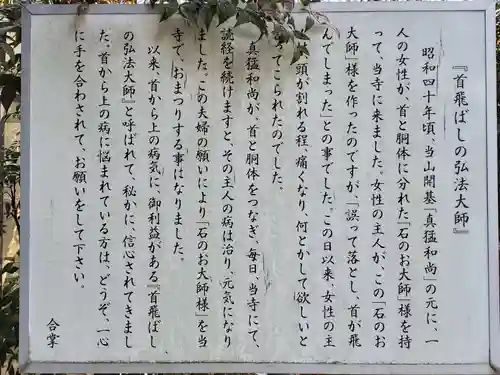 『首飛ばしの弘法大師』
昭和四十年頃、当山開基「真猛和尚」の元に、一
人の女性が、首と胴体に分れた「石のお大師」様を持
って、当寺に来ました。女性の主人が、この「石のお
大師」様を作ったのですが、「誤って落とし、首が飛
んでしまった」との事でした。この日以来、女性の主
頭が割れる程、痛くなり、何とかして欲しいと
てこられたのでした。
真猛和尚が、首と胴体をつなぎ、毎日、当寺にて、
読経を続けますと、その主人の病は治り、元気になり
ました。この夫婦の願いにより「石のお大師様」を当
寺で、おまつりする事はなりました。
以来、首から上の病気に、御利益がある『首飛ばし
の弘法大師』と呼ばれて、秘かに、信心されてきまし
た。首から上の病に悩まれている方は、どうぞ、一心
に手を合わされて、お願いをして下さい。
合掌